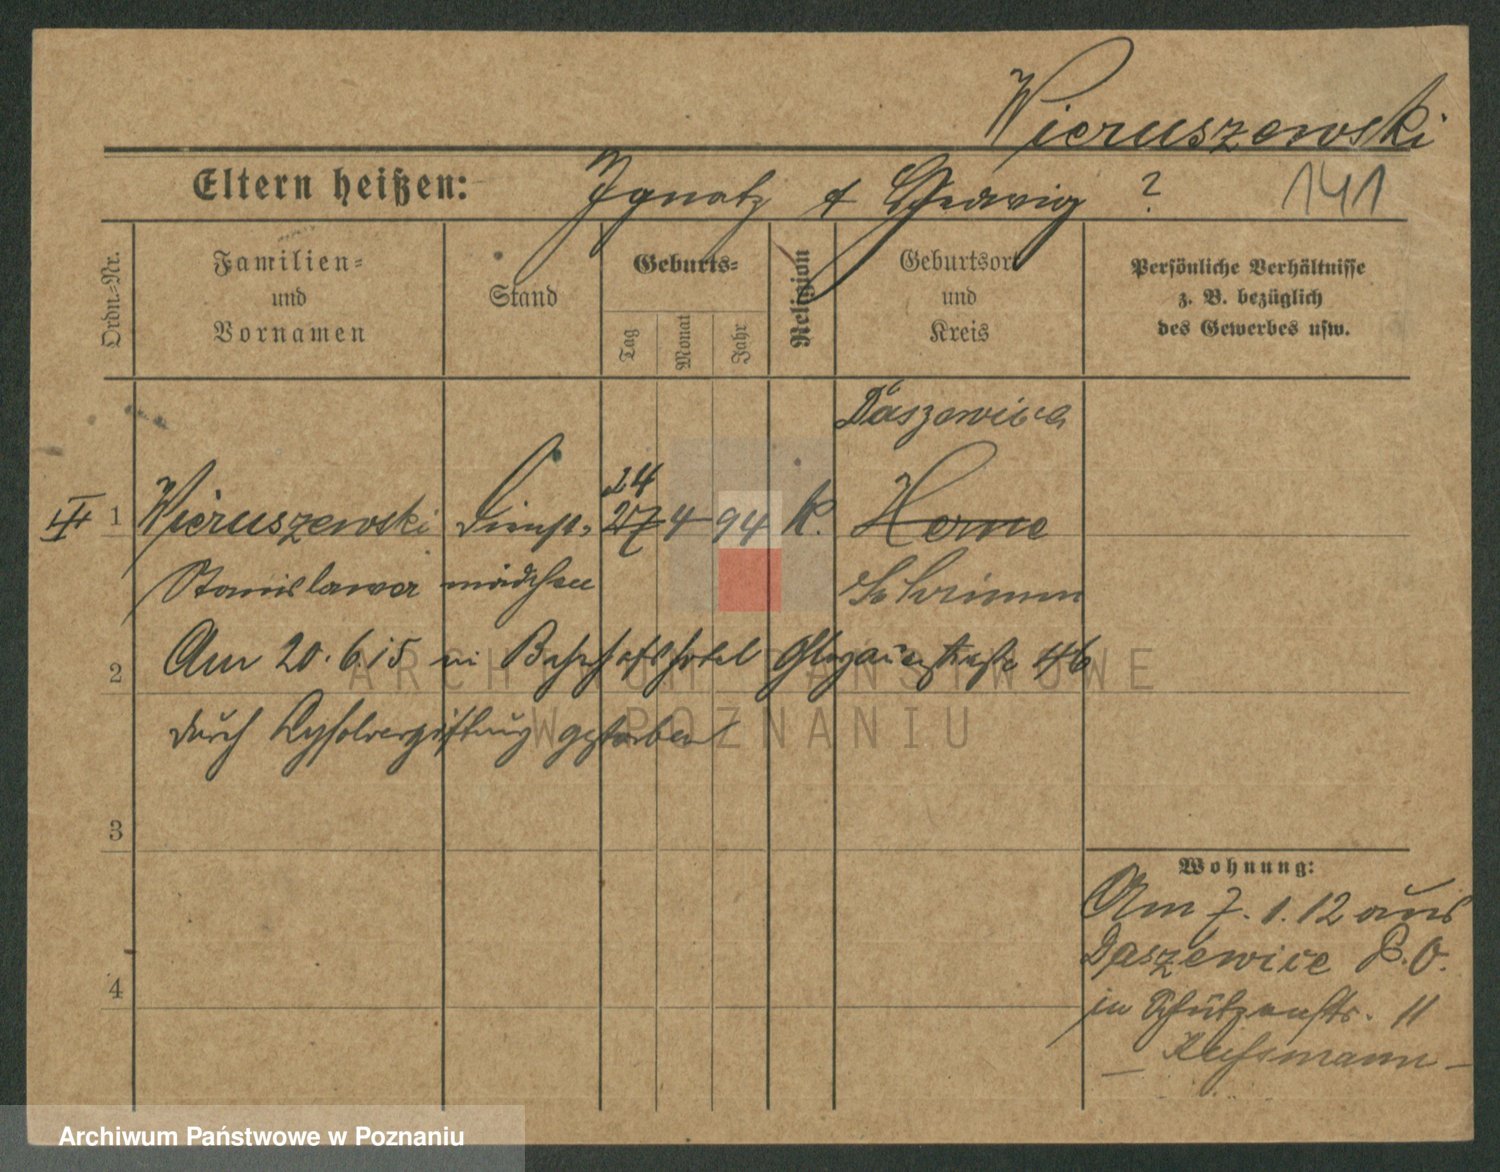 Wieruszewski
Eltern heißen: Ignatz & Hedwig ? 141
Ordn.-Nr.
Familien-
und
Vornamen
Stand
Geburts-
Tag
Monat
Jahr
Religion
Geburtsort
und
Kreis
Persönliche Verhältnisse
z. B. bezüglich
des Gewerbes usw.
Daszewice
24
III 1 Wieruszewski Dienst- 27 4 94 k. Horne
Stanislawa mädchen Schrimm
2 Am 20.6.15 in Bahnhofshotel Glogauerstraße 46
durch Lysolvergiftung gestorben
3
4
Wohnung:
Am 7.1.12 aus
Daszewice P.O.
in Schützenstr. 11
ARCHIWUM PAŃSTWOWE
W POZNANIU
Archiwum Państwowe w Poznaniu